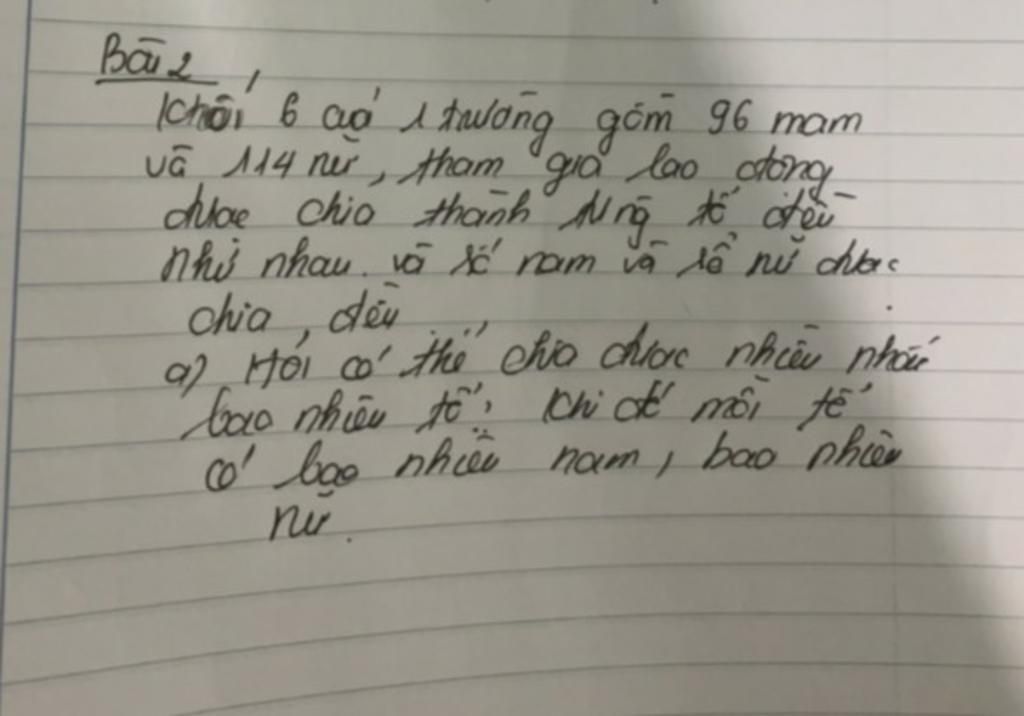 Bài 2
Khối 6 có 1 trường gồm 96 mam
và 114 nữ, tham gia lao động
được chia thành từng tổ đều
như nhau. và số nam và số nữ được
chia, đều
a) Hỏi có thể chia được nhiều nhất
bao nhiêu tổ, khi đó mỗi tổ
có bao nhiêu nam, bao nhiêu
nữ.